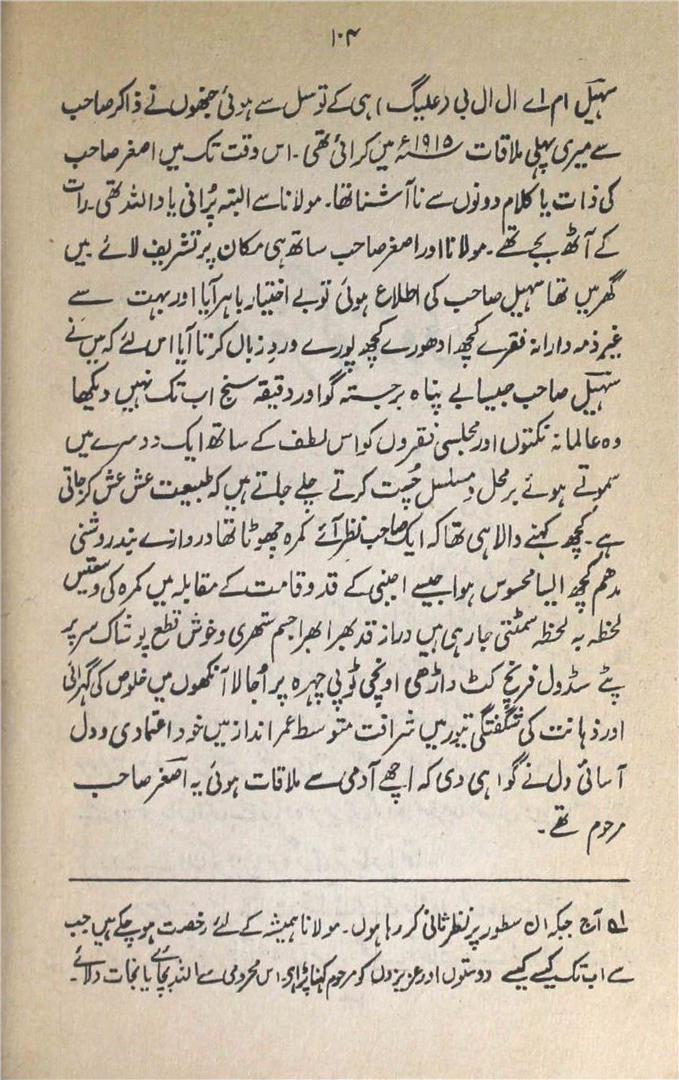 ۱۰۴
سہیل ام اے ال ال بی (علیگ) ہی کے توسل سے ہوئی جنھوں نے ذاکر صاحب
سے میری پہلی ملاقات ۱۹۱۵ء میں کرائی تھی۔ اس وقت تک میں اصغر صاحب
کی ذات یا کلام دونوں سے نا آشنا تھا۔ مولانا سے البتہ پُرانی یاد اللہ تھی۔ رات
کے آٹھ بجے تھے۔ مولانا اور اصغر صاحب ساتھ ہی مکان پر تشریف لائے میں
گھر میں تھا سہیل صاحب کی اطلاع ہوئی تو بے اختیار باہر آیا اور بہت سے
غیر ذمہ دارانہ فقرے کچھ ادھورے کچھ پورے ورد زباں کرتا آیا اس لئے کہ میں نے
سہیل صاحب جیسا بے پناہ برجستہ گو اور دقیقہ سنج اب تک نہیں دیکھا
وہ عالمانہ نکتوں اور مجلسی فقروں کو اس لطف کے ساتھ ایک دوسرے میں
سموتے ہوئے برمحل و مسلسل چُست کرتے چلے جاتے ہیں کہ طبیعت عش عش کر جاتی
ہے۔ کچھ کہنے والا ہی تھا کہ ایک صاحب نظر آئے کمرہ چھوٹا تھا دروازے بند روشنی
مدھم کچھ ایسا محسوس ہوا جیسے اجنبی کے قد و قامت کے مقابلہ میں کمرہ کی وسعتیں
لحظہ بہ لحظہ سمٹتی جا رہی ہیں دراز قد بھرا بھرا جسم ستھری و خوش قطع پوشاک سر پر
پٹے سڈول فرنچ کٹ داڑھی اونچی ٹوپی چہرہ پر اُجالا آنکھوں میں خلوص کی گہرائی
اور ذہانت کی شگفتگی تیور میں شرافت متوسط عمر انداز میں خود اعتمادی و دل
آسائی دل نے گواہی دی کہ اچھے آدمی سے ملاقات ہوئی یہ اصغر صاحب
مرحوم تھے۔
لہ آج جبکہ ان سطور پر نظر ثانی کر رہا ہوں۔ مولانا ہمیشہ کے لئے رخصت ہو چکے ہیں جب
سے اب تک کیسے کیسے دوستوں اور عزیزوں کو مرحوم کہنا پڑا ہے اس محرومی سے اللہ بچائے یا نجات دلائے۔